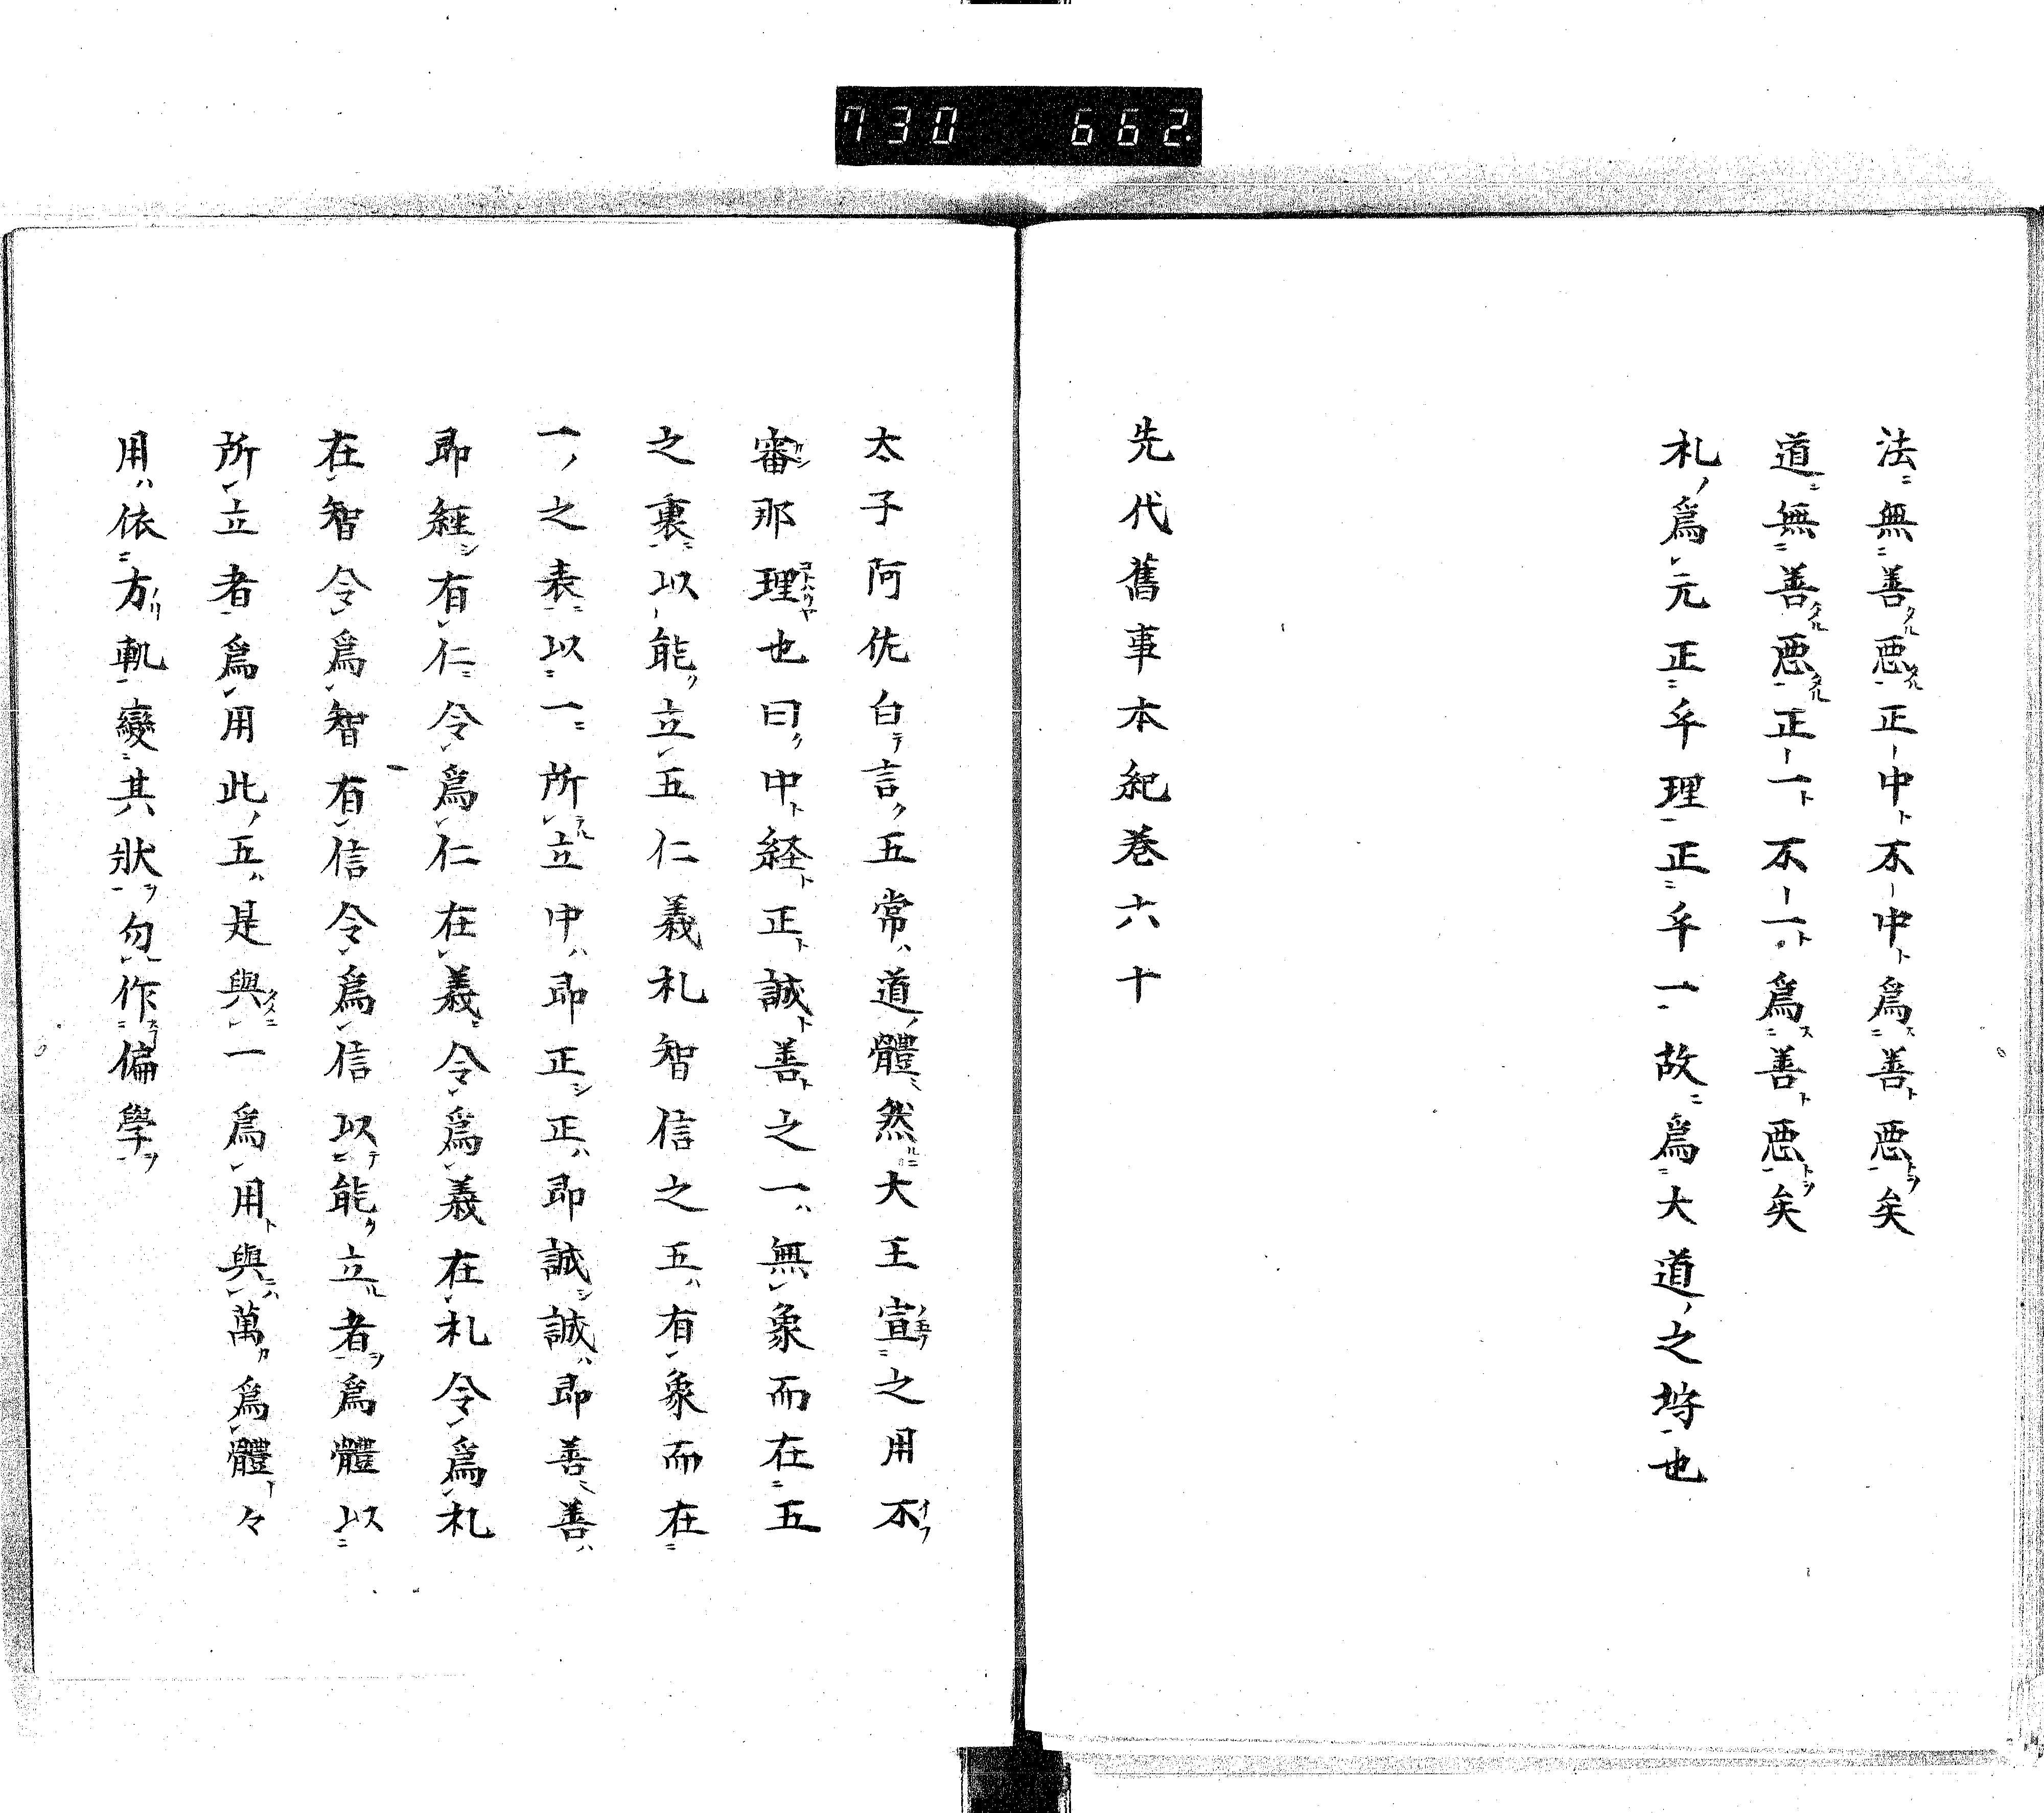 730 662
法無善悪正中不中為善悪矣
道無善悪正一不一為善悪矣
札為元正乎理正乎一故為大道之㘽也
先代舊事本紀巻六十
太子阿佐白言五常道體然大王宣之用不
審那理也曰中経正誠善之一無象而在五
之裏以能立五仁義札智信之五有象而在
一之表以一所立中即正正即誠誠即善善
即経有仁令為仁在義令為義在札令為札
在智令為智有信令為信以能立者為體以
所立者為用此五是與一為用與萬為體々
用依方軌變其狀勿作偏學